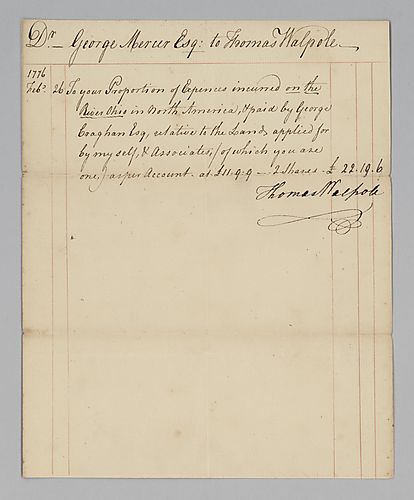 Dr. George Mercer Esq: to Thomas Walpole
1776
Feb. 26 To your Proportion of Expences incurred on the
River Ohio in North America, & paid by George
Croaghan Esq, relative to the Lands applied for
by myself, & Associates, (of which you are
one,) as per Account at £11.9.9 — 2 Shares £ 22.19.6
Thomas Walpole